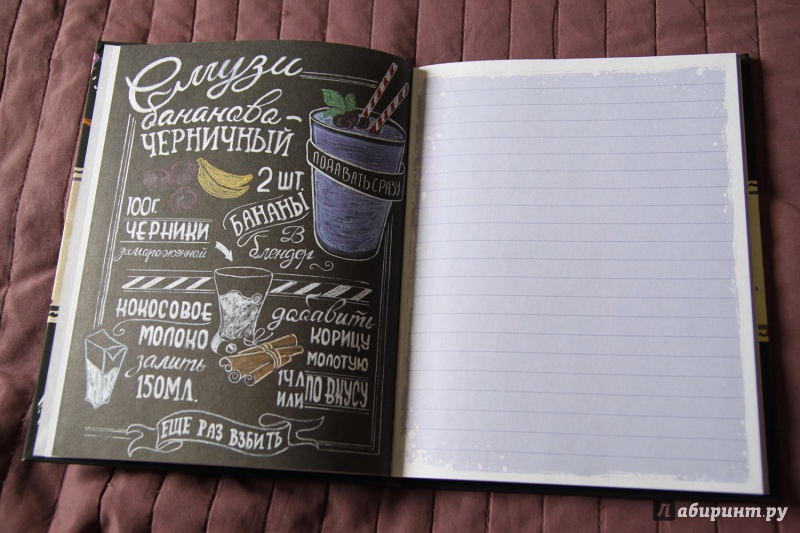 Смузи
бананово-
ЧЕРНИЧНЫЙ
ПОДАВАТЬ СРАЗУ
2 ШТ.
БАНАНЫ
В
блендер
100г.
ЧЕРНИКИ
замороженной
КОКОСОВОЕ
МОЛОКО
залить
150МЛ.
добавить
КОРИЦУ
МОЛОТУЮ
1ЧЛ
ИЛИ ПО ВКУСУ
ЕЩЕ РАЗ ВЗБИТЬ
Лабиринт.ру